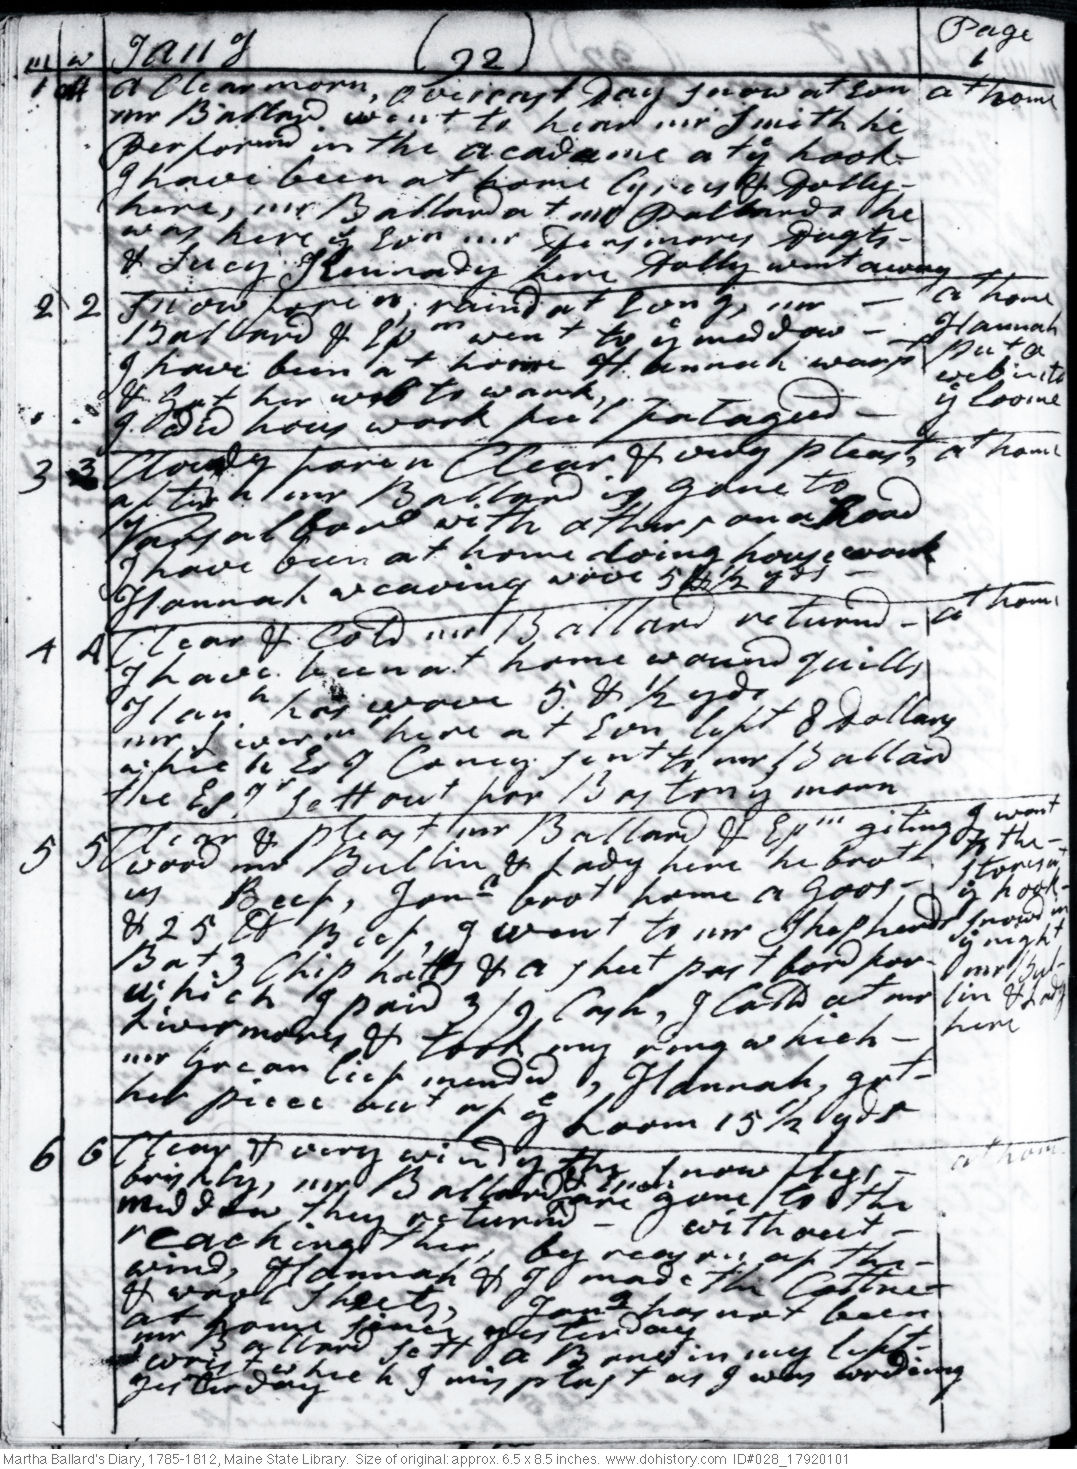 m w Jany (22) Page 1
1 A Clear morn, overcast Day snow at Evn at home
mr Ballard went to hear mr Smith he
performd in the academe at ye hook
I have been at home Cyrus & Dolly
here, mr Ballard at mr Pollards he
was here ye Evn mr Densmores Dagts
& Lucy Kennady here Dolly went away
2 2 Snow foren, raind at Evng, mr at home
Ballard & Epm went to ye meddow Hannah
I have been at home Hannah warpt put a
& got her web to work, web into
I did hous work feel fatagued ye Loome
3 3 Cloudy foren Clear & very pleast, at home
aftern mr Ballard is gone to
Vassalboro with others on a Road
I have been at home doing house work
Hannah weaving wove 5 & 1/2 yds
4 4 Clear & Cold mr Ballard returnd at home
I have been at home wound quills
Hanh has wove 5 & 1/2 yds
mr Livermn here at Evn left 8 Dollars
which Esq Coney sent to mr Ballard
the Esqr sett out for Boston ye morn
5 5 Clear & pleast mr Ballard & Epm giting I went
wood mr Bullin & Lady here he brot to the
us Beef, Jona brot home a Goos stores at
& 25 lb Beef, I went to mr Shepherds ye hook
Bat 3 Chip hatts & a sheet past bord for snowd in
which I paid 3/9 Cash, I Calld at mr ye night
Livermores & took my ring which mr Bul-
mr Grean lief mended, Hannah, got lin & Lady
her piece out of ye Loom 15 1/2 yds here
6 6 Clear & very windy the snow flies at home
briskly, mr Ballard & are gone to the
meddow they returnd without
reaching ther, by reason of the
wind, Hannah & I made the Cotten
& wool sheets, Jona has not been
at home since yesterday
mr Ballard sett a Bone in my left
wrist which I misplast as I was
yesterday
Martha Ballard's Diary, 1785-1812, Maine State Library. Size of original: approx. 6.5 x 8.5 inches. www.dohistory.com ID#028_17920101